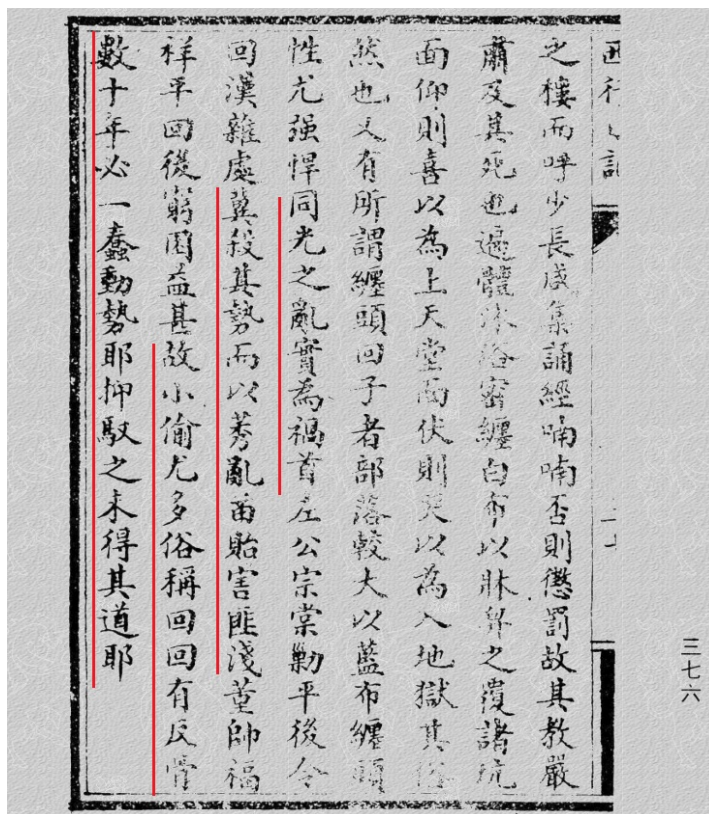 西行日記
之樓而呼少長咸集誦經喃喃否則懲罰故其教嚴
肅及其死也遍體沐浴密纏白布以牀舁之覆諸坑
面仰則喜以為上天堂面伏則哭以為入地獄其俗
然也又有所謂纏頭回子者部落較大以藍布纏頭
性尤强悍同光之亂實為禍首左公宗棠勦平後令
回漢雜處冀殺其勢而以莠亂苗貽害匪淺董帥福
祥平回後窮困益甚故小偷尤多俗稱回回有反骨
數十年必一蠢動勢耶抑馭之未得其道耶
三七六